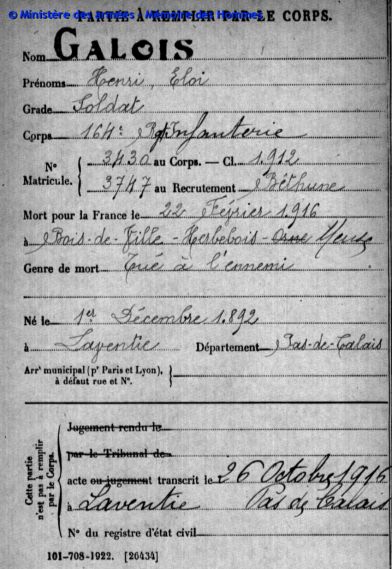 © Ministère des armées - Mémoire des Hommes
PARTIE À REMPLIR PAR LE CORPS.
Nom GALOIS
Prénoms Henri, Eloi
Grade Soldat
Corps 164e Rgt Infanterie
N° Matricule. { 3430 au Corps. — Cl. 1.912
3747 au Recrutement Béthune
Mort pour la France le 22 Février 1.916
à Bois-de-Ville - Herbebois - Orne Meuse
Genre de mort Tué à l'ennemi
Né le 1er Décembre 1.892
à Laventie Département Pas-de-Calais
Arr¹ municipal (p¹ Paris et Lyon),
à défaut rue et N°. }
Cette partie n'est pas à remplir par le Corps. {
Jugement rendu le
par le Tribunal de
acte ou jugement transcrit le 26 Octobre 1916
à Laventie Pas de Calais
N° du registre d'état civil
101-708-1922. [26434]